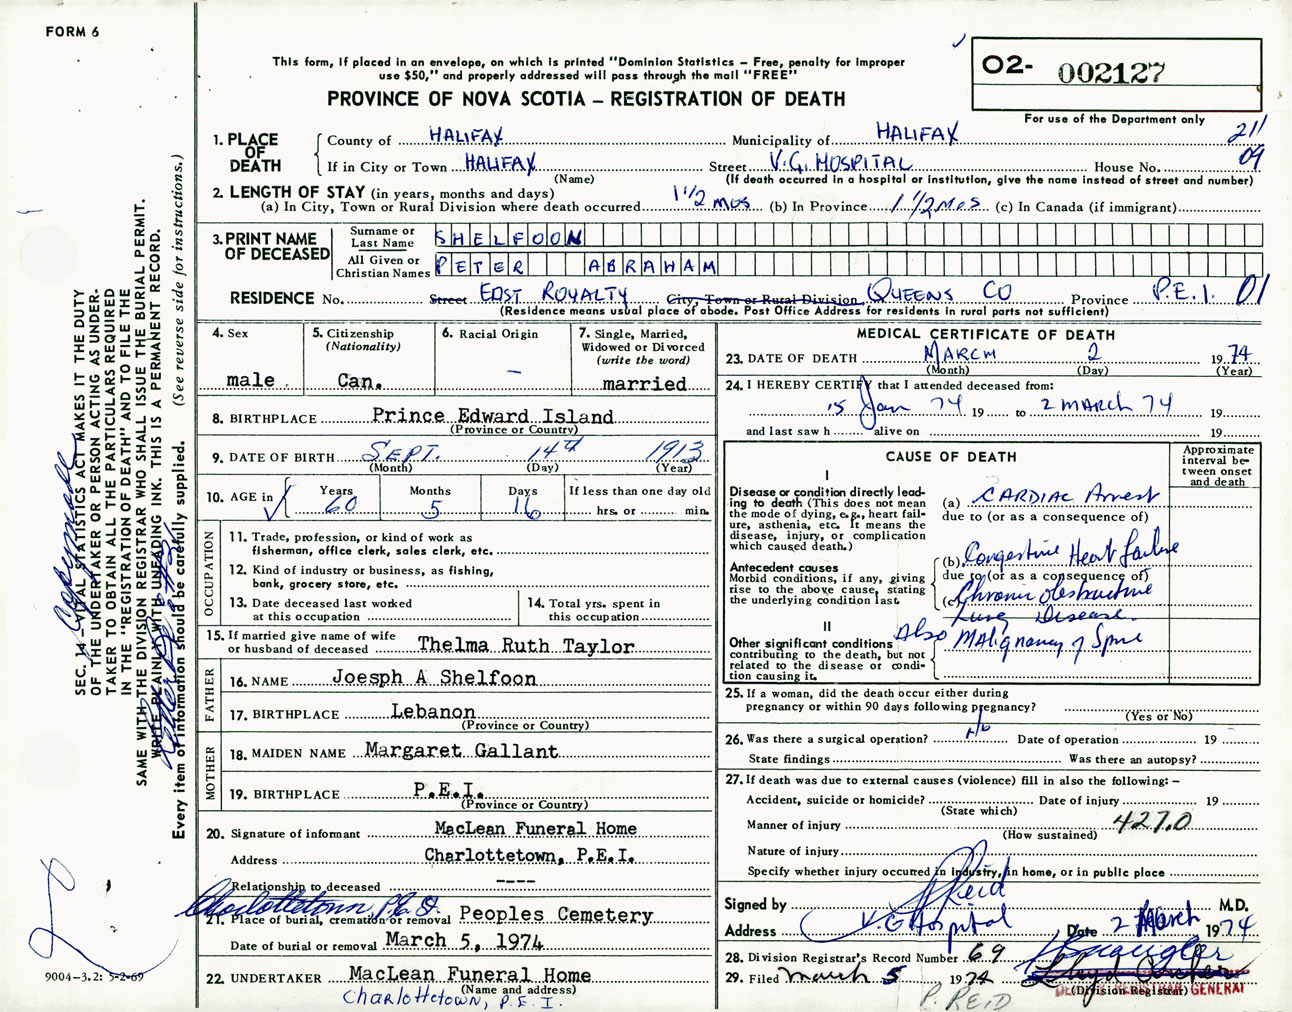 FORM 6
This form, if placed in an envelope, on which is printed "Dominion Statistics – Free, penalty for improper
use $50," and properly addressed will pass through the mail "FREE"
PROVINCE OF NOVA SCOTIA – REGISTRATION OF DEATH
O2- 002127
For use of the Department only
211
09
1. PLACE OF DEATH
County of HALIFAX Municipality of HALIFAX
If in City or Town HALIFAX Street V.G. HOSPITAL House No.
(Name) (If death occurred in a hospital or institution, give the name instead of street and number)
2. LENGTH OF STAY (in years, months and days)
(a) In City, Town or Rural Division where death occurred 1 1/2 mos (b) In Province 1 1/2 mos (c) In Canada (if immigrant)
3. PRINT NAME OF DECEASED
Surname or Last Name SHELFOON
All Given or Christian Names PETER ABRAHAM
RESIDENCE No. Street EAST ROYALTY City, Town or Rural Division QUEENS CO Province P.E.I. 01
(Residence means usual place of abode. Post Office Address for residents in rural parts not sufficient)
4. Sex
male
5. Citizenship
(Nationality)
Can.
6. Racial Origin
–
7. Single, Married,
Widowed or Divorced
(write the word)
married
8. BIRTHPLACE Prince Edward Island
(Province or Country)
9. DATE OF BIRTH SEPT. 14th 1913
(Month) (Day) (Year)
10. AGE in Years Months Days If less than one day old
60 5 16 hrs. or min.
OCCUPATION
11. Trade, profession, or kind of work as
fisherman, office clerk, sales clerk, etc.
12. Kind of industry or business, as fishing,
bank, grocery store, etc.
13. Date deceased last worked
at this occupation
14. Total yrs. spent in
this occupation
15. If married give name of wife
or husband of deceased Thelma Ruth Taylor
FATHER
16. NAME Joesph A Shelfoon
17. BIRTHPLACE Lebanon
(Province or Country)
MOTHER
18. MAIDEN NAME Margaret Gallant
19. BIRTHPLACE P.E.I.
(Province or Country)
20. Signature of informant MacLean Funeral Home
Address Charlottetown, P.E.I.
Relationship to deceased ----
Charlottetown, P.E.I.
21. Place of burial, cremation or removal Peoples Cemetery
Date of burial or removal March 5, 1974
22. UNDERTAKER MacLean Funeral Home
(Name and address)
CHARLOTTETOWN, P.E.I.
MEDICAL CERTIFICATE OF DEATH
23. DATE OF DEATH MARCH 2 1974
(Month) (Day) (Year)
24. I HEREBY CERTIFY that I attended deceased from:
15 Jan 74 19 to 2 MARCH 74 19
and last saw h alive on 19
CAUSE OF DEATH
Approximate
interval be-
tween onset
and death
I
Disease or condition directly lead-
ing to death (This does not mean
the mode of dying, e.g., heart fail-
ure, asthenia, etc. It means the
disease, injury, or complication
which caused death.)
(a) CARDIAC Arrest
due to (or as a consequence of)
Antecedent causes
Morbid conditions, if any, giving
rise to the above cause, stating
the underlying condition last.
(b) Congestive Heart Failure
due to (or as a consequence of)
(c) Chronic Obstructive
Lung Disease.
II
Other significant conditions
contributing to the death, but not
related to the disease or condi-
tion causing it.
Also MALignancy of Spine
25. If a woman, did the death occur either during
pregnancy or within 90 days following pregnancy?
(Yes or No)
26. Was there a surgical operation? No Date of operation 19
State findings Was there an autopsy?
27. If death was due to external causes (violence) fill in also the following: –
Accident, suicide or homicide? Date of injury 19
(State which)
Manner of injury 427.0
(How sustained)
Nature of injury
Specify whether injury occurred in industry, in home, or in public place
Signed by P Reid M.D.
Address V.G Hospital Date 2 March 1974
28. Division Registrar's Record Number 69
29. Filed March 5 1974
(Division Registrar)
DEPUTY REGISTRAR GENERAL
P. REID
SEC. 14 – VITAL STATISTICS ACT MAKES IT THE DUTY
OF THE UNDERTAKER OR PERSON ACTING AS UNDER-
TAKER TO OBTAIN ALL THE PARTICULARS REQUIRED
IN THE "REGISTRATION OF DEATH" AND TO FILE THE
SAME WITH THE DIVISION REGISTRAR WHO SHALL ISSUE THE BURIAL PERMIT.
WRITE PLAINLY WITH UNFADING INK. THIS IS A PERMANENT RECORD.
Every item of information should be carefully supplied. (See reverse side for instructions.)
9004-3.2: 5-2-69